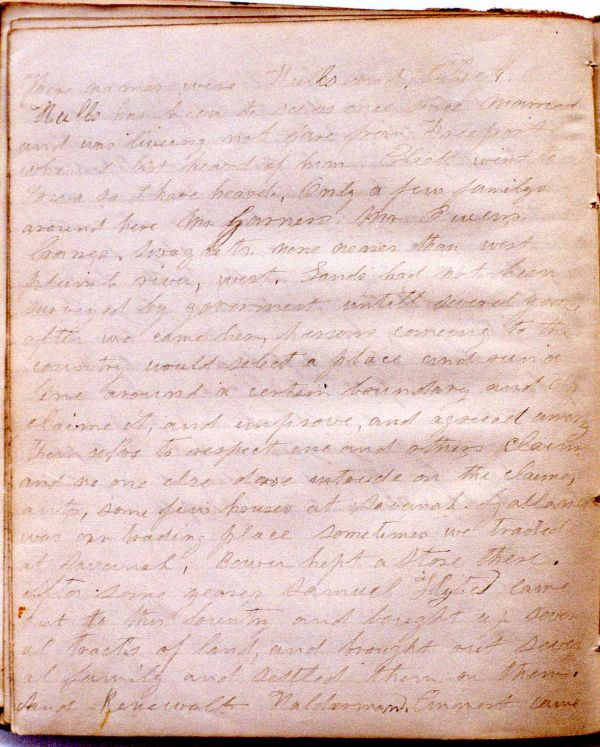 There names were Nulls and
Nulls has been to see us once since married
and was liveing not fare from Freeport
when I last heard of him. went to
as I have heard, Only a few familys
around here Mr Garners. Mr
none nearer than west
plumb river, west. Lands had not been
surveyed by goverment untill several years
after we came here, persons comeing to the
country would select a place and run a
line around a certain boundary and
claime it, and improve, and agreeed among
themselves to respect one and others claim
and no one else dare intrude on the claime,
some few houses at Savanah. Galena
was our trading place sometimes we traded
at Savanah, Bower kept a store there.
after some yeaser Samuel came
out to this country and bought up sever
al tracts of land, and brought out sever
al family and settled them on them.
And came